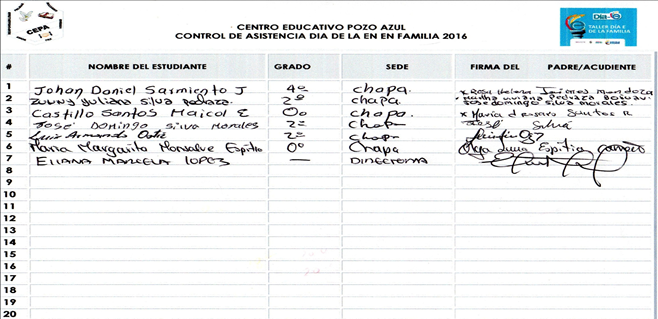 CEPA
CENTRO EDUCATIVO POZO AZUL
CONTROL DE ASISTENCIA DIA DE LA EN EN FAMILIA 2016
Día E
TALLER DÍA E
DE LA FAMILIA
# NOMBRE DEL ESTUDIANTE GRADO SEDE FIRMA DEL PADRE/ACUDIENTE
1 Johan Daniel Sarmiento J 4º chapa. x Rosa Helena Jaimes Mendoza
2 Zunny Yuliana Silva Pedraza. 2º chapa. Martha Viviana Pedraza
Jose domingo Silva morales.
3 Castillo Santos Maicol E 0o chapa. x Maria d Rosaro Santos R
4 José Domingo Silva Morales 2º chapa José Silva
5 Luis Armando Ortiz 2º chapa
6 Maria Margarita Monsalve Espitia 0º Chapa Olga Espitia
7 Eliana Marcela Lopez — Directora
8
9
10
11
12
13
14
15
16
17
18
19
20